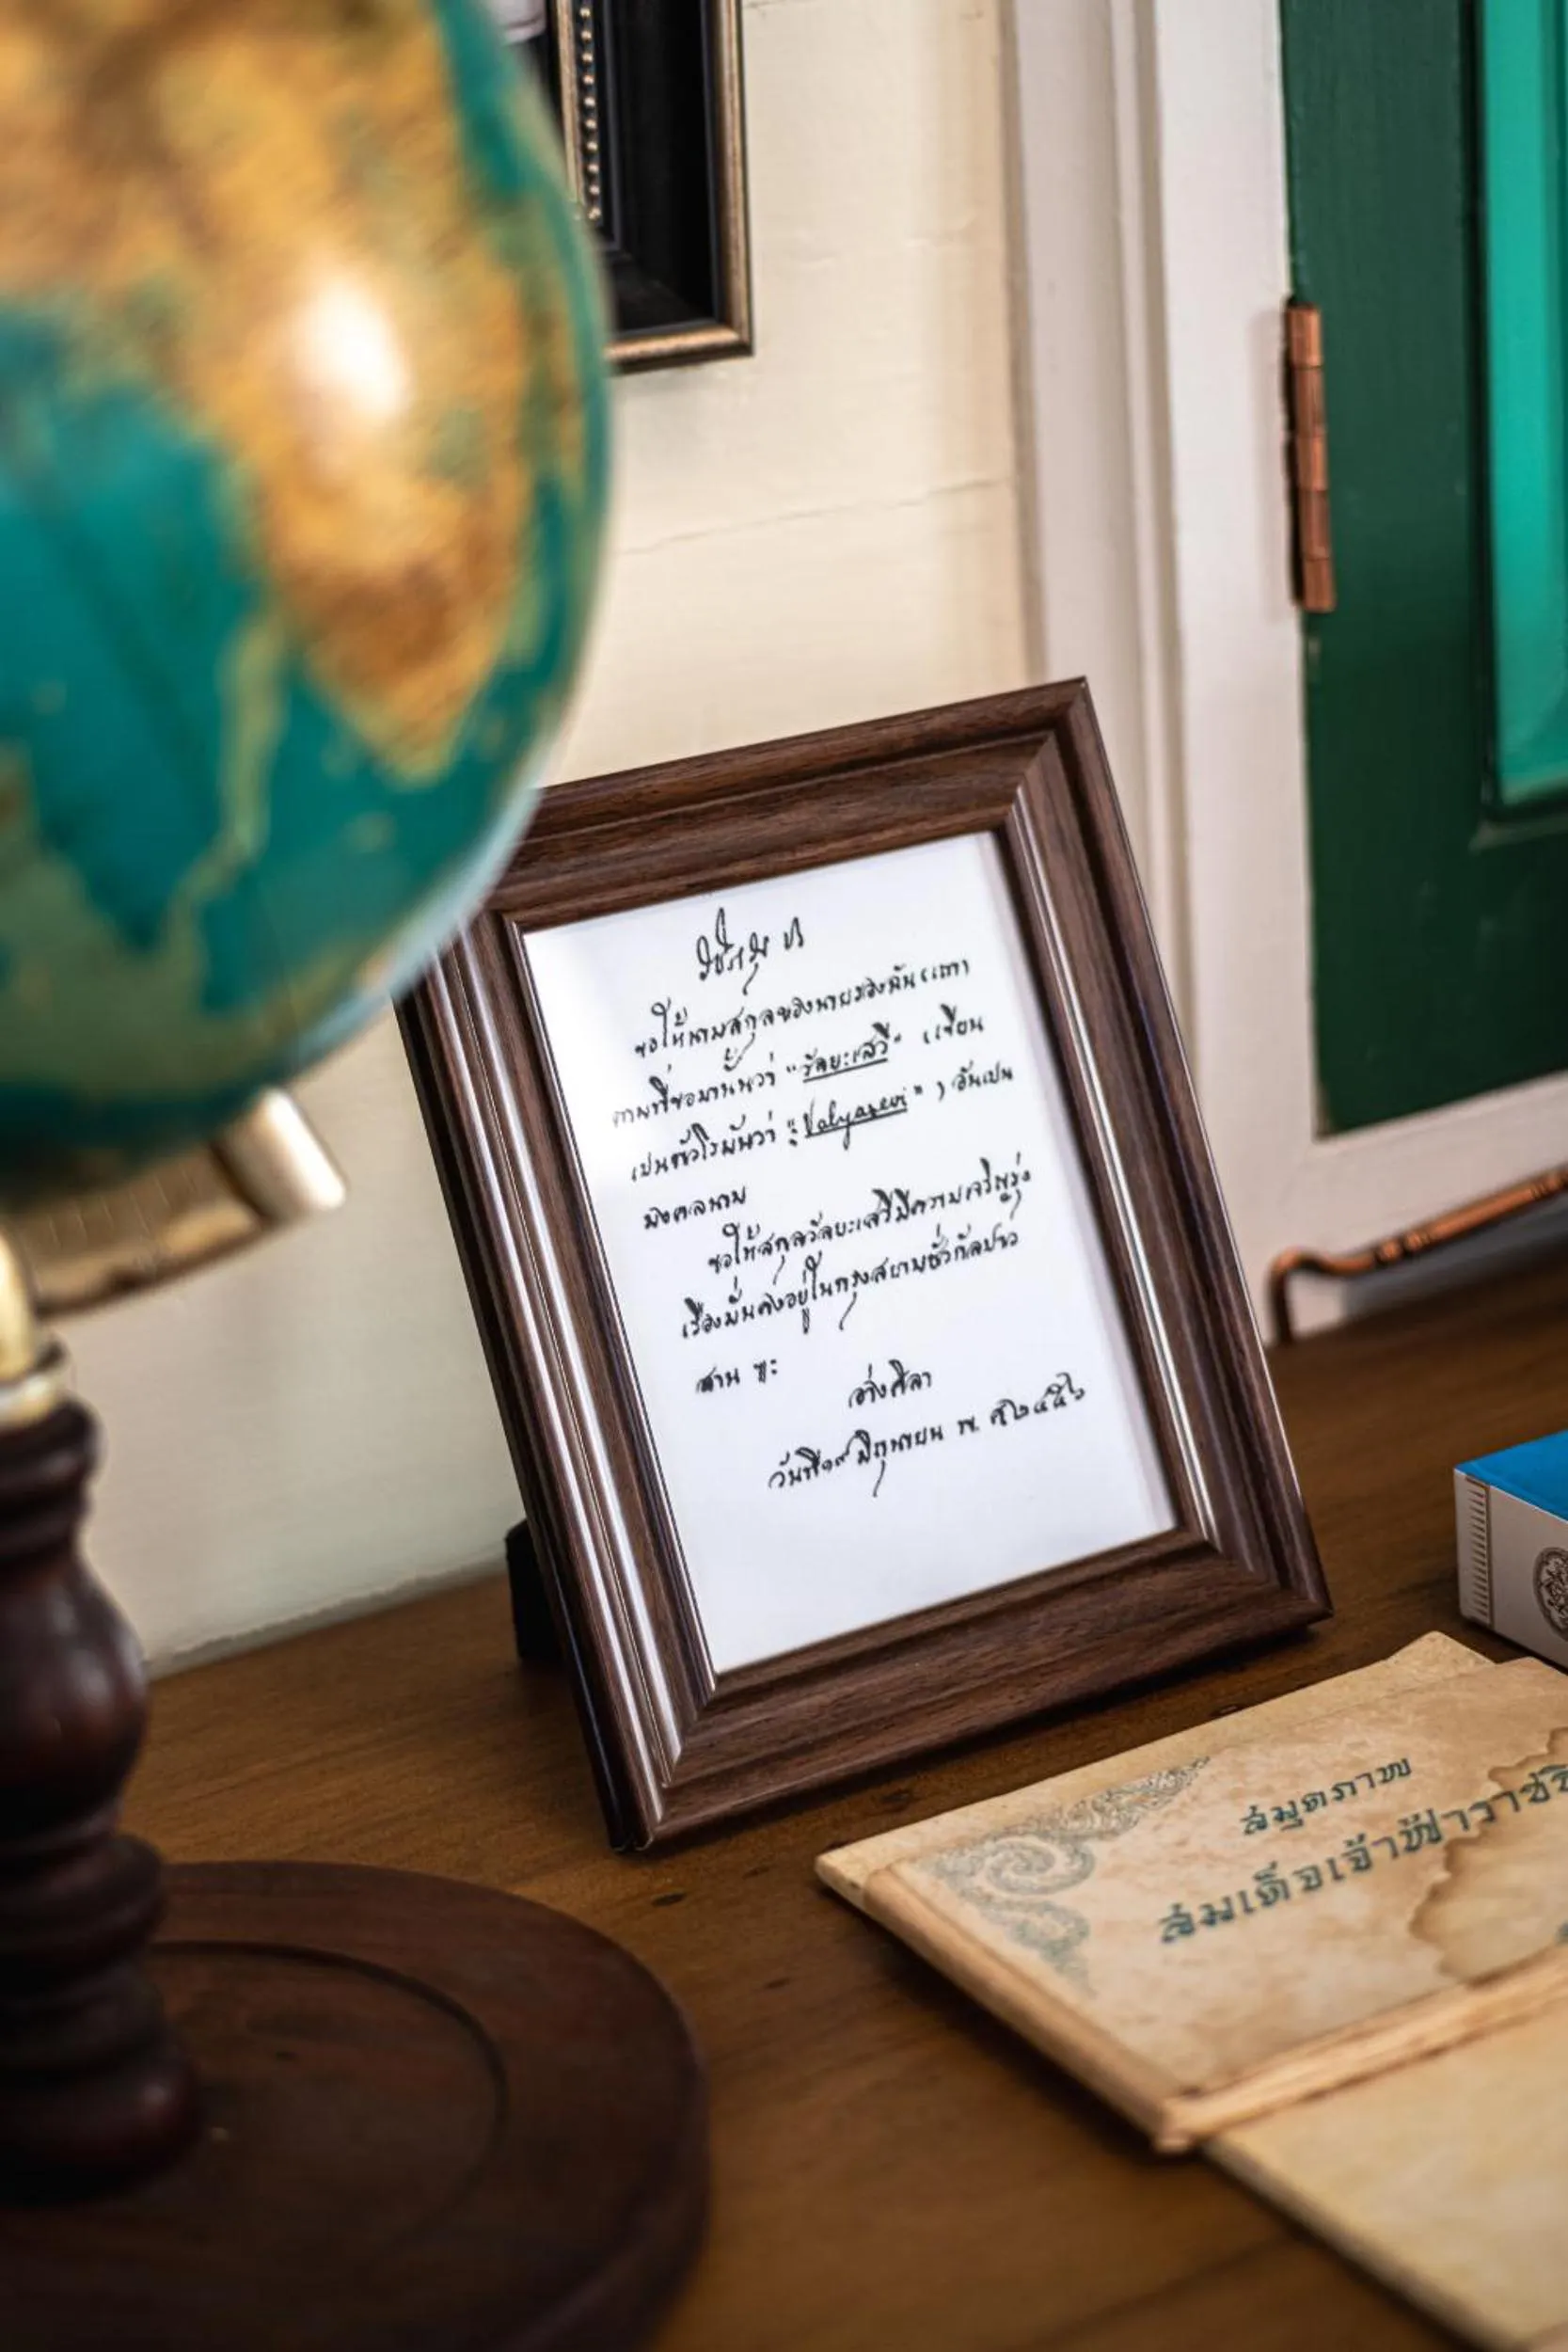 ขอให้นามสกุลของนายของฉันเถา
ตามที่ขอมานั้นว่า "วัลยะเสวี" (เขียน
เป็นตัวโรมันว่า "Valyasevi") อันเปน
มงคลนาม
ขอให้สกุลวัลยะเสวีมีความเจริญรุ่ง
เรืองมั่นคงอยู่ในกรุงสยามชั่วกัลปาว
สาน ขะ
อ่างศิลา
วันที่ ๑๙ มิถุนายน พ.ศ. ๒๔๕๖
สมุดภาพ
สมเด็จเจ้าฟ้าวาชิ